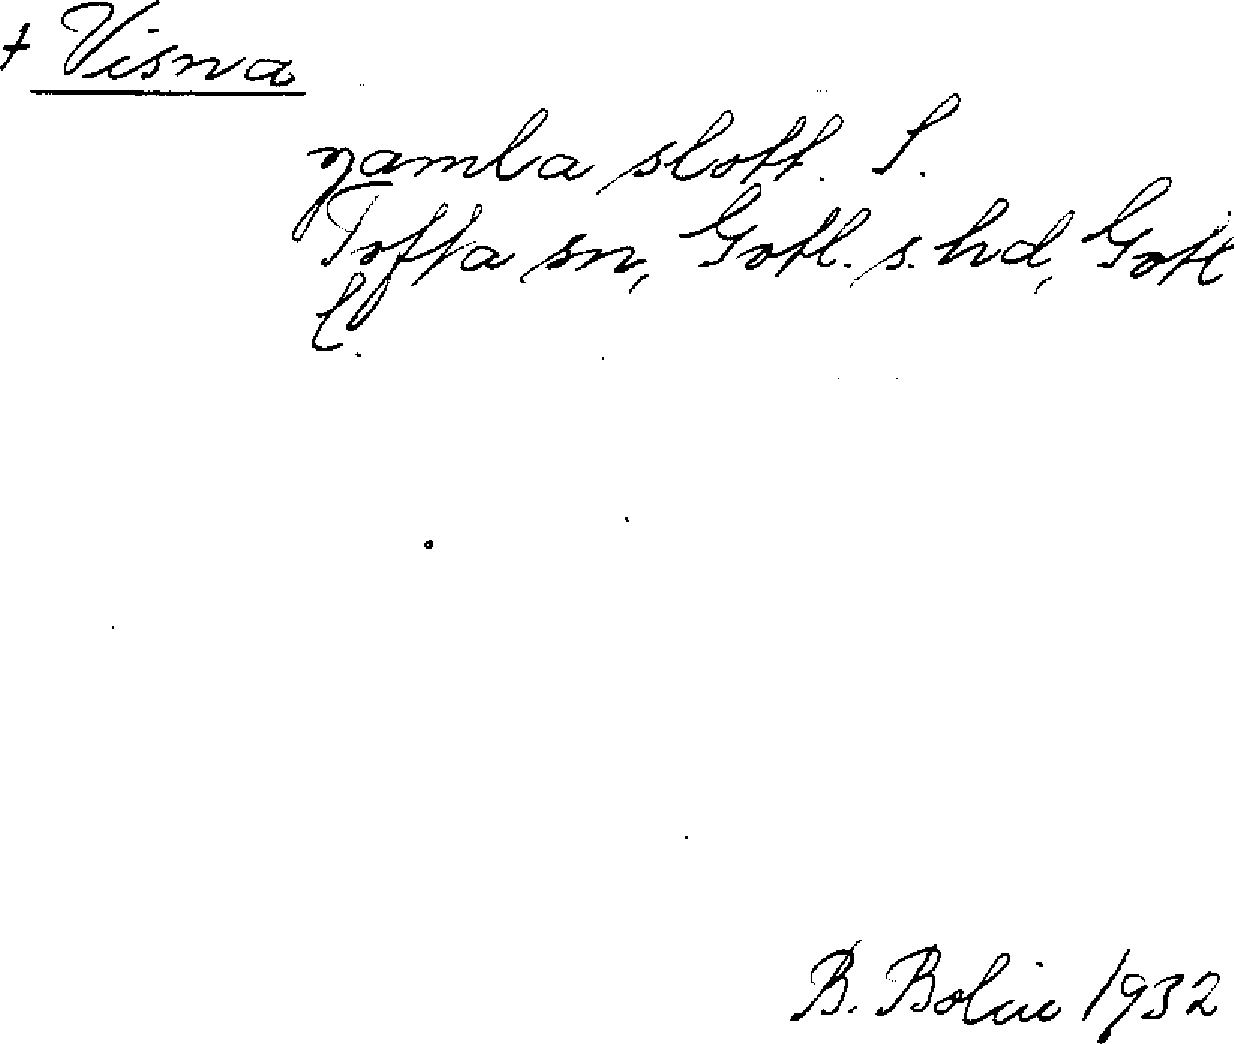 + Visna
gamla slott. S.
Tofta sn, Gotl. s. hd, Gotl
l.
B. Bolin 1932